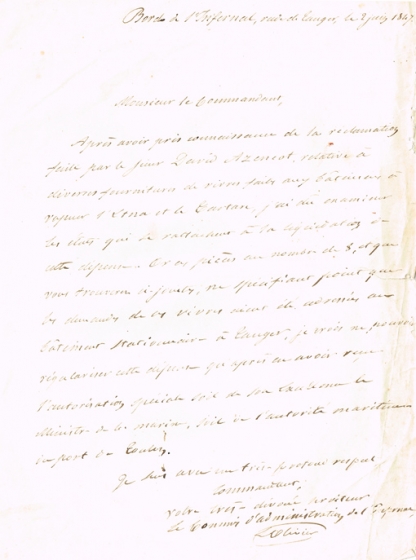 Bord de l'Infernal, rade de Tanger, le 2 juin 1847
Monsieur le Commandant,
Après avoir pris connaissance de la réclamation
faite par le Sieur David Azoncot, relative à
diverses fournitures de vivres faits aux bâtimens à
vapeur l'Etna et le Tartare, j'ai dû examiner
les états qui se rattachent à la liquidation de
cette dépense. Ces pièces au nombre de 8, et que
vous trouverez ci-jointes, ne spécifiant point que
les demandes de ces vivres aient été adressées au
bâtiment stationnaire à Tanger, je crois ne pouvoir
régulariser cette dépense qu'après en avoir reçu
l'autorisation spéciale soit de son Excellence le
Ministre de la marine, soit de l'autorité maritime
du port de Toulon.
Je suis avec un très-profond respect
Commandant,
votre très-dévoué serviteur
Le Commis d'administration de l'Infernal
Olivier